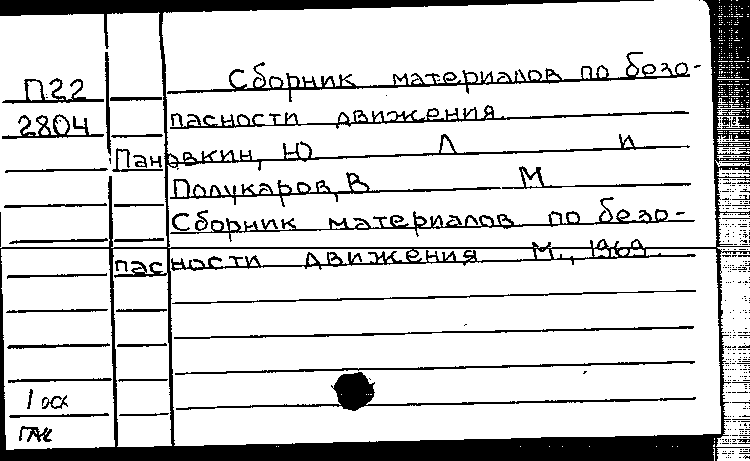 П22
2804
Сборник материалов по безо-
пасности движения.
Пановкин, Ю Л и
Полукаров, В М
Сборник материалов по безо-
пасности движения М., 1969.
1 оск